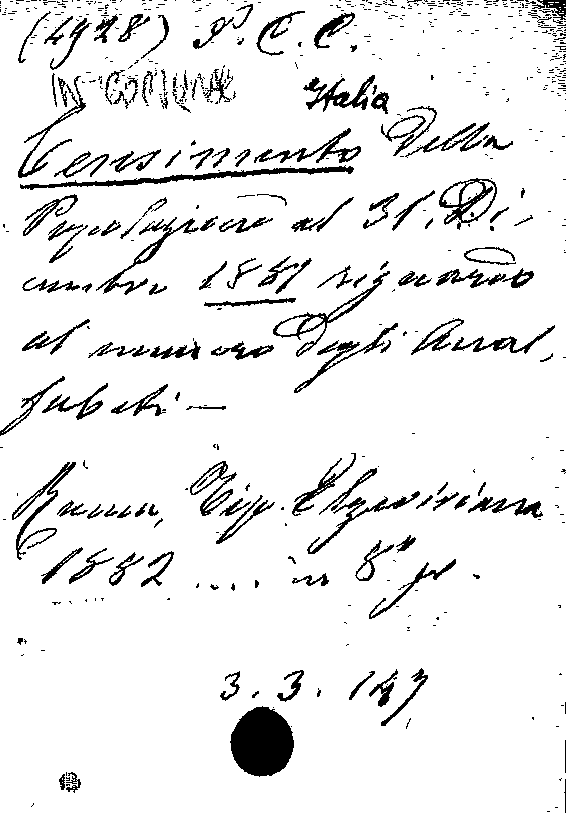 (4928) P. C. C.
IN COMUNE
Italia
Censimento della
Popolazione al 31. Di-
cembre 1881 riguardo
al numero degli Anal,
fabeti —
Roma, Tip. Elzeviriana
1882 .... in 8° gr.
3. 3. 147